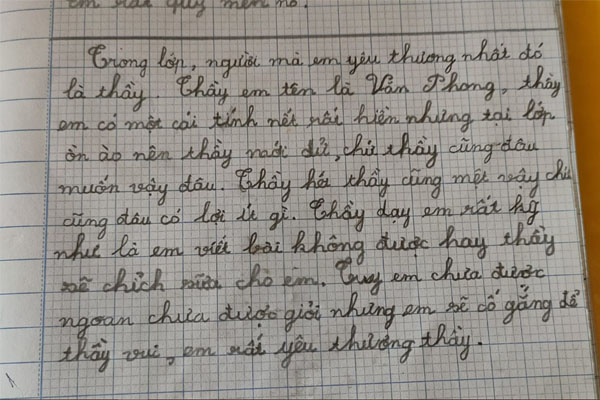 em rất quý mến nó.
Trong lớp, người mà em yêu thương nhất đó
là thầy. Thầy em tên là Vân Phong, thầy
em có một cái tính nết rất hiền nhưng tại lớp
ồn ào nên thầy mới dữ, chứ thầy cũng đâu
muốn vậy đâu. Thầy hét thầy cũng mệt vậy chứ
cũng đâu có lợi ít gì. Thầy dạy em rất kỹ
như là em viết bài không được hay thầy
sẽ chỉch sửa cho em. Tuy em chưa được
ngoan chưa được giỏi nhưng em sẽ cố gắng để
thầy vui, em rất yêu thương thầy.